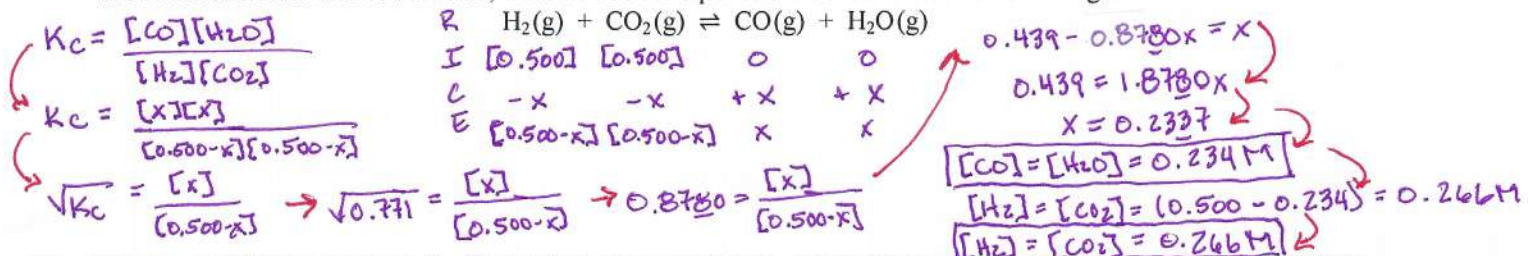 H₂(g) + CO₂(g) ⇌ CO(g) + H₂O(g)
Kc = [CO][H₂O] / [H₂][CO₂]
Kc = [x][x] / [0.500-x][0.500-x]
√Kc = [x] / [0.500-x] → √0.771 = [x] / [0.500-x] → 0.8780 = [x] / [0.500-x]
R
I [0.500] [0.500] 0 0
C -x -x +x +x
E [0.500-x] [0.500-x] x x
0.439 - 0.8780x = x
0.439 = 1.8780x
x = 0.2337
[CO] = [H₂O] = 0.234 M
[H₂] = [CO₂] = (0.500 - 0.234) = 0.266M
[H₂] = [CO₂] = 0.266 M